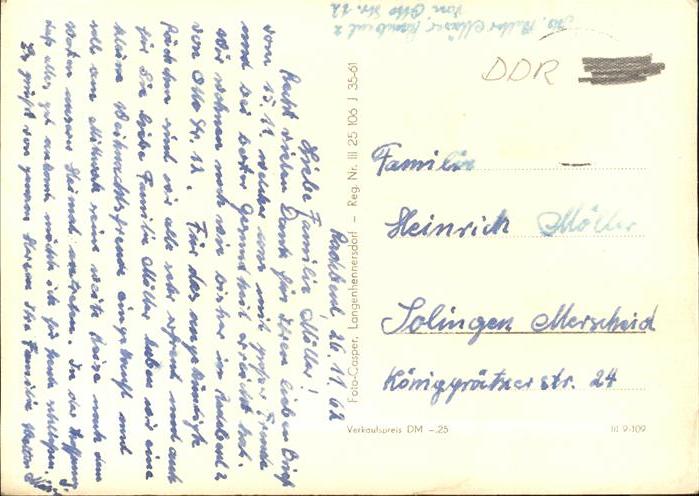 Walter Mäser, Radebeul 2
von Otto Str. 12
DDR
Familie
Heinrich Möller
Solingen Merscheid
Königgrätzer str. 24
Verkaufspreis DM –.25
III 9-109
Foto-Casper, Langenhennersdorf – Reg. Nr. III 25 106 J 35-61
Radebeul, 26.11.62
Liebe Familie Möller!
Recht vielen Dank für Ihren lieben Brief
vom 15.11. welcher uns mit großer Freude
und bei bester Gesundheit erreicht hat.
Wir wohnen noch wie bisher in Radebeul 2
von Otto Str. 12. Für das angekündigte
Päckchen sind wir alle sehr erfreut und auch
für Sie liebe Familie Möller haben wir eine
kleine Weihnachtsfreude eingekauft und
soll am Mittwoch seine weite Reise nach dem
Westen unserer Heimat antreten. In der Hoffnung
daß alles gut ankommt möchte ich für heute schließen.
Es grüßt von ganzem Herzen Ihre Familie Walter